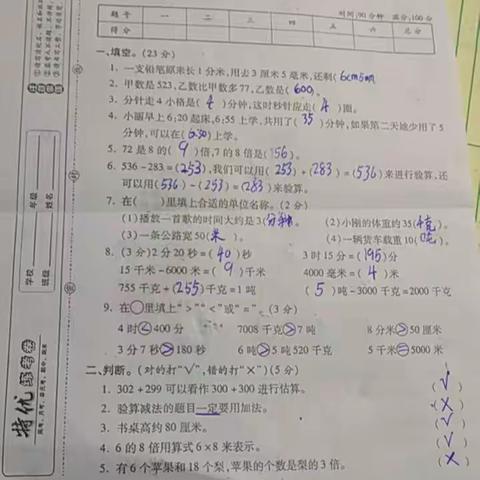 时间:90分钟 满分:100分
题号 一 二 三 四 五 六 总分
得分
一、填空。(23分)
1. 一支铅笔原来长1分米,用去3厘米5毫米,还剩(6cm5mm
2. 甲数是523,乙数比甲数多77,乙数是(600)。
3. 分针走4小格是(4)分钟,这时秒针应走(4)圈。
4. 小丽早上6:20起床,6:55上学,共用了(35)分钟,如果第二天她少用了5
分钟,可以在(6:50)上学。
5. 72是8的(9)倍,7的8倍是(56)。
6. 536-283=(253),我们可以用(253)+(283)=(536)来进行验算,还
可以用(536)-(253)=(283)来验算。
7. 在( )里填上合适的单位名称。(2分)
(1)播放一首歌的时间大约是3(分钟)。 (2)小刚的体重约35(千克)。
(3)一条公路宽50(米)。 (4)一辆货车载重10(吨)。
8. (3分)2分20秒=(40)秒 3时15分=(195)分
15千米-6000米=(9)千米 4000毫米=(4)米
755千克+(255)千克=1吨 (5)吨-3000千克=2000千克
9. 在○里填上">""<"或"="。(3分)
4时<400分 7008千克>7吨 8分米>50厘米
3分7秒>180秒 6吨>5吨520千克 5千米=5000米
二、判断。(对的打"√",错的打"×")(5分)
1. 302+299可以看作300+300进行估算。 (√)
2. 验算减法的题目一定要用加法。 (×)
3. 书桌高约80厘米。 (√)
4. 6的8倍用算式6×8来表示。 (√)
5. 有6个苹果和18个梨,苹果的个数是梨的3倍。 (×)
学校 年级
班级 姓名
特优